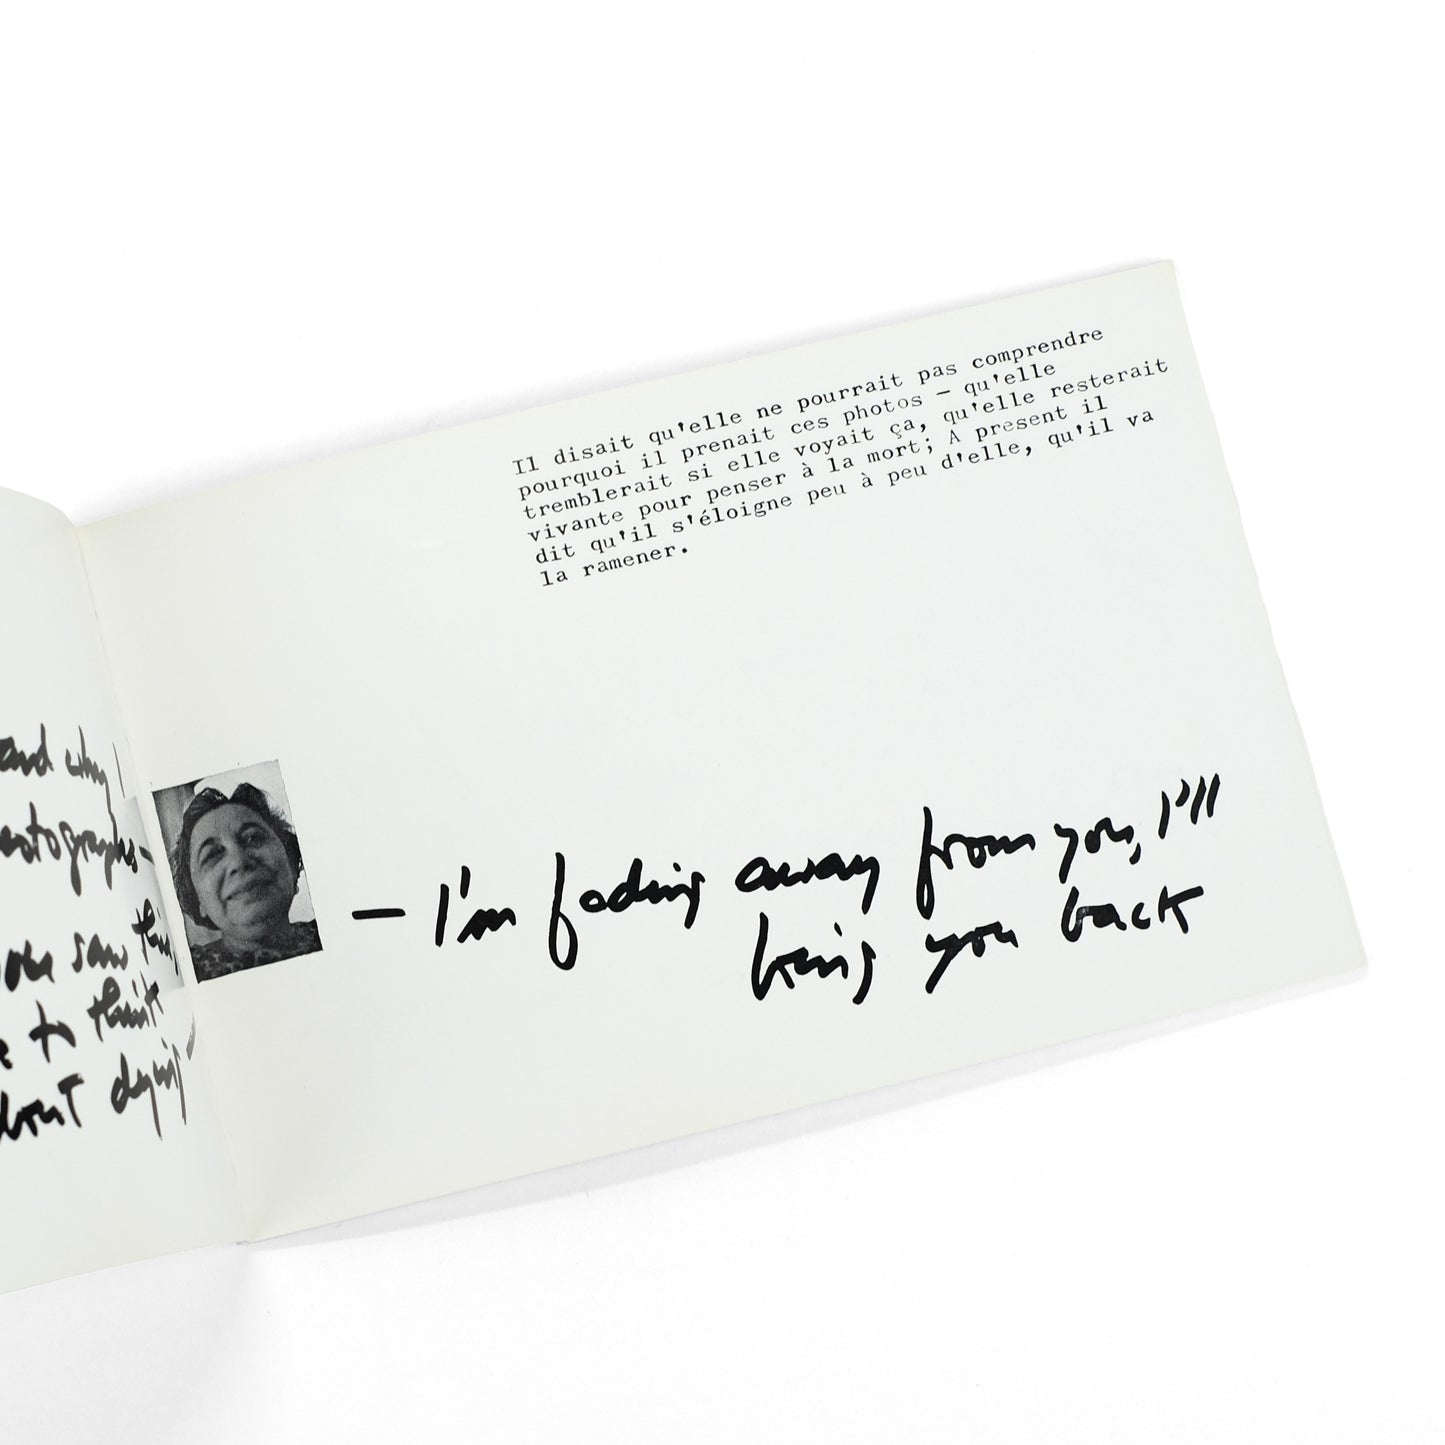 and why I
photographs —
you saw this
to think
about dying —
Il disait qu'elle ne pourrait pas comprendre
pourquoi il prenait ces photos — qu'elle
tremblerait si elle voyait ça, qu'elle resterait
vivante pour penser à la mort; A present il
dit qu'il s'éloigne peu à peu d'elle, qu'il va
la ramener.
— I'm fading away from you, I'll
bring you back